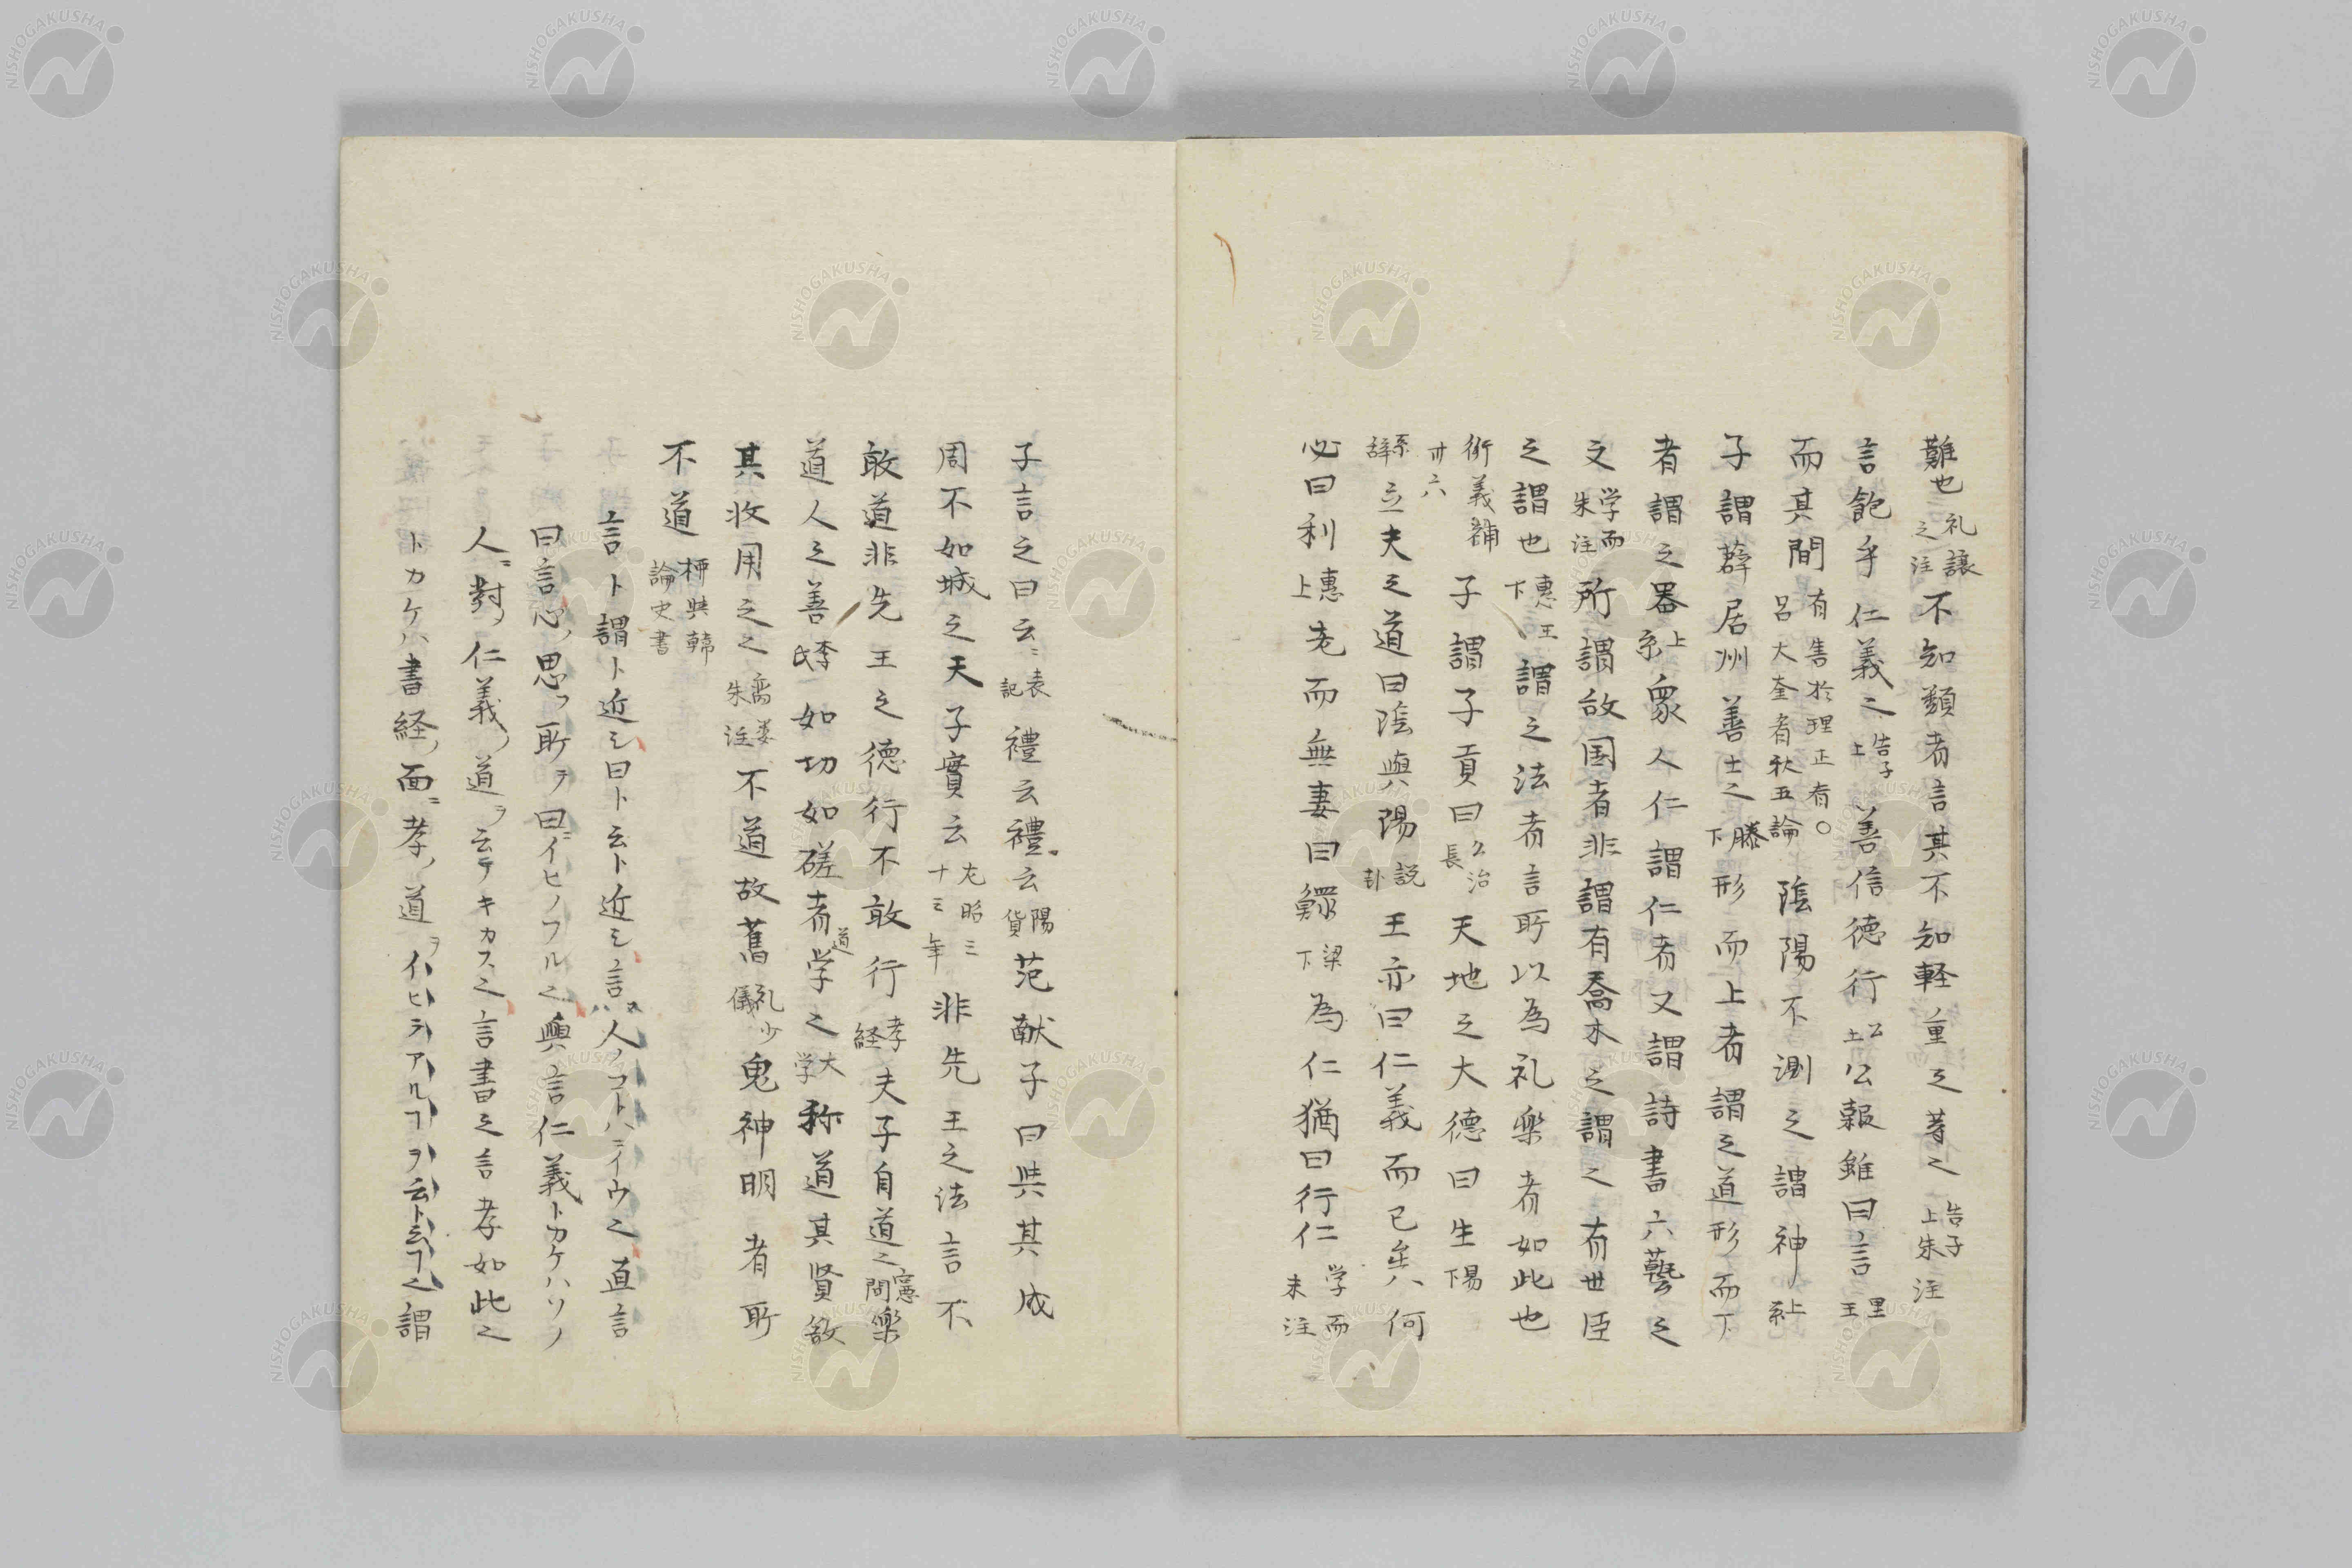 難也礼譲之注不知類者言其不知軽重之等之告子上朱注
言飽乎仁義之告子上善信徳行公土公報雖曰言里王
而其間有害於理正者〇呂大奎春秋五論陰陽不測之謂神上系
子謂薛居州善士之滕下形而上者謂之道形而下
者謂之器上系衆人仁謂仁者又謂詩書六藝之
文学而朱注所謂故国者非謂有喬木之謂之有世臣
之謂也惠王下謂之法者言所以為礼楽者如此也
衍義補卅六子謂子貢曰公冶長天地之大徳曰生易下
系辞立夫之道曰陰與陽説卦王亦曰仁義而已矣何
必曰利惠上老而無妻曰鰥梁下為仁猶曰行仁学而朱注
子言之曰云〻表記禮云禮云陽貨范献子曰與其成
周不如城之天子實云左昭三十二年非先王之法言不
敢道非先王之徳行不敢行孝経夫子自道之憲問樂
道人之善季氏如切如磋者道学之大学称道其賢
其收用之之离娄朱注不道故舊礼少儀鬼神明者所
不道柳與韓論史書
言ト謂ト近シ曰ト云ト近シ言ハ人ノコトハニイウ之直言
曰言心ノ思フ所ヲ曰ニイヒノフル之與言仁義トカケハソノ
人ニ對ノ仁義ノ道ヲ云テキカス之言書之言孝如此之
トカケハ書経ノ面ニ孝ノ道ヲイヒテアルヿヲ云トミヿ之謂
NISHOGAKUSHA